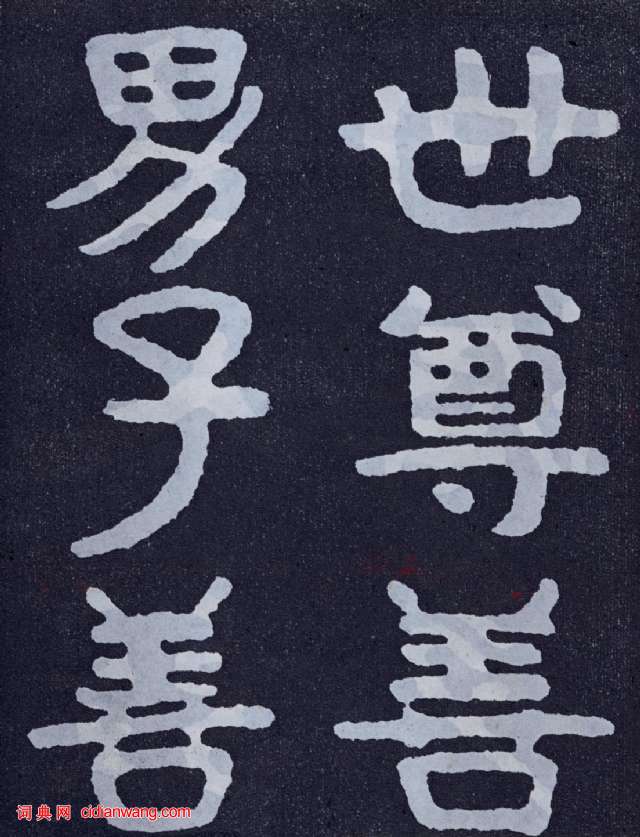 世尊善
男子善
词典网 cidianwang.com